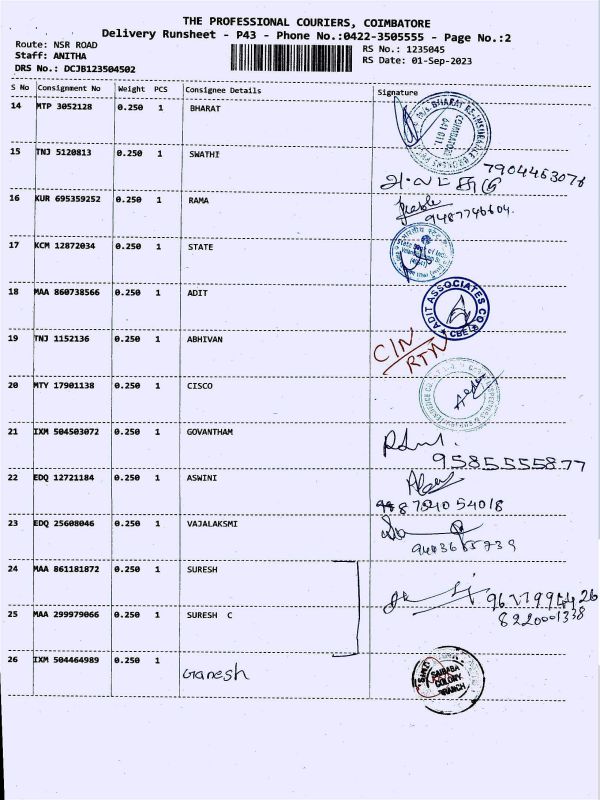 THE PROFESSIONAL COURIERS, COIMBATORE
Delivery Runsheet - P43 - Phone No.:0422-3505555 - Page No.:2
Route: NSR ROAD
RS No.: 1235045
Staff: ANITHA
RS Date: 01-Sep-2023
DRS No.: DCJB123504502
S No Consignment No Weight PCS Consignee Details Signature
14 MTP 3052128 0.250 1 BHARAT
15 TNJ 5120813 0.250 1 SWATHI
7904463076
16 KUR 695359252 0.250 1 RAMA
9487746604.
17 KCM 12872034 0.250 1 STATE
18 MAA 860738566 0.250 1 ADIT
ADIT ASSOCIATES
CBE
19 TNJ 1152136 0.250 1 ABHIVAN
CIN
RTN
20 MTY 17901138 0.250 1 CISCO
21 IXM 504503072 0.250 1 GOVANTHAM
9585555877
22 EDQ 12721184 0.250 1 ASWINI
23 EDQ 25608046 0.250 1 VAJALAKSMI
24 MAA 861181872 0.250 1 SURESH
25 MAA 299979066 0.250 1 SURESH C
8220001338
26 IXM 504464989 0.250 1 Ganesh
SAIBABA
COLONY
BRANCH